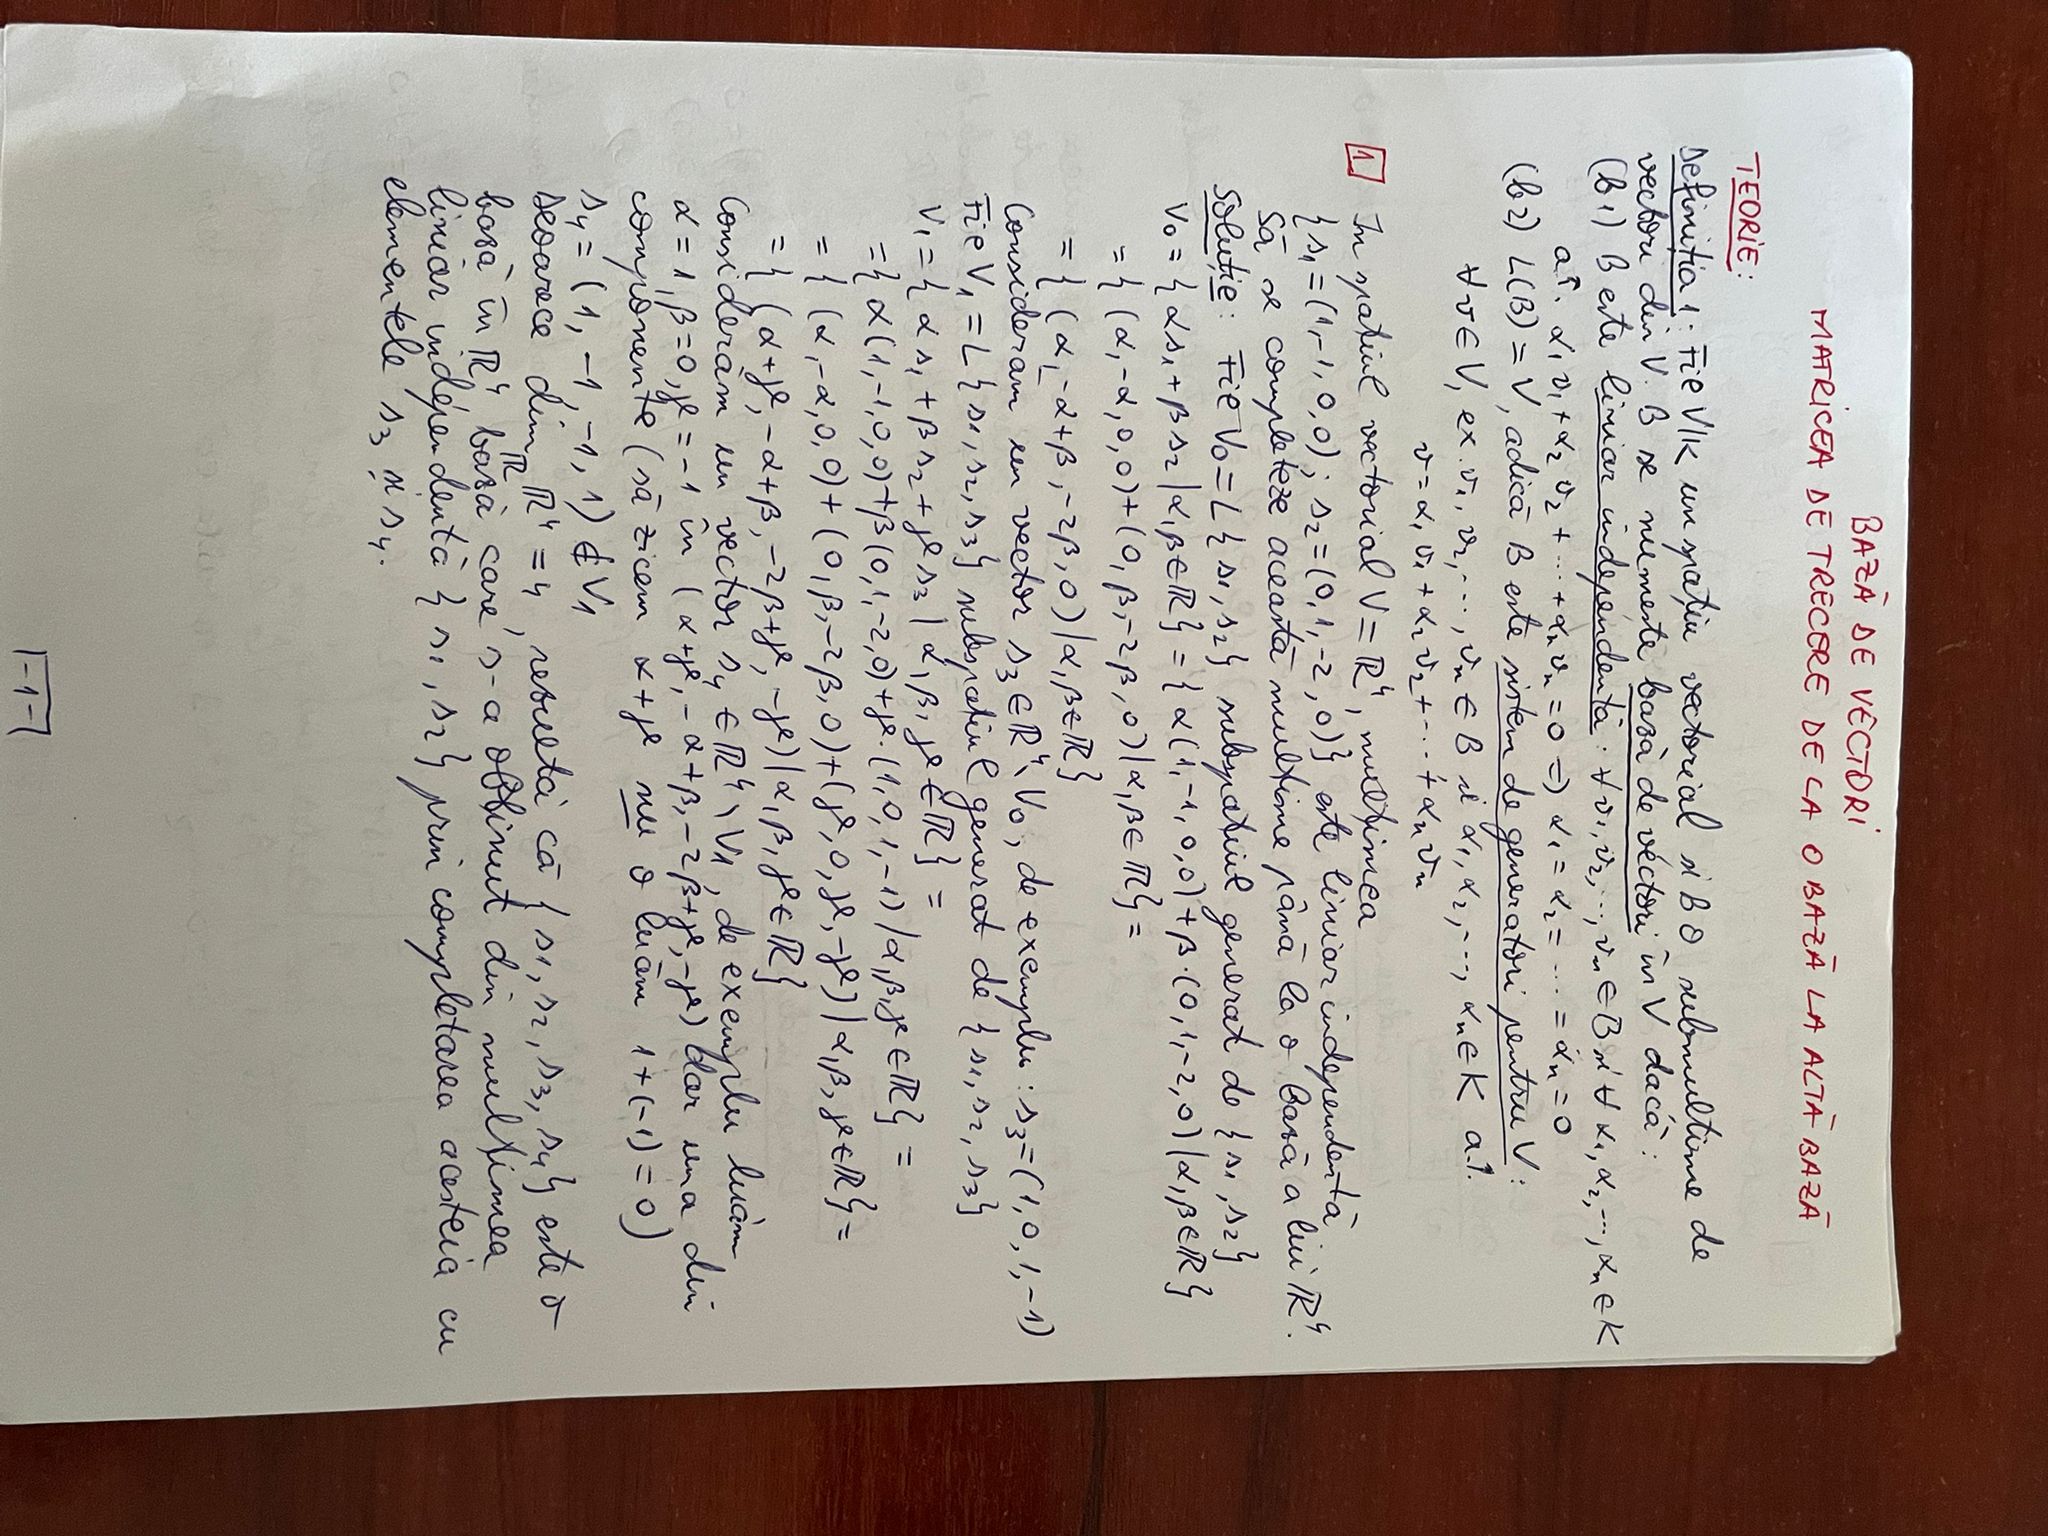 BAZĂ DE VECTORI
MATRICEA DE TRECERE DE LA O BAZĂ LA ALTĂ BAZĂ
TEORIE:
Definiția 1: Fie V/K un spațiu vectorial și B o submulțime de
vectori din V. B se numește bază de vectori în V dacă:
(b1) B este liniar independentă: ∀ v₁, v₂, ..., vₙ ∈ B și ∀ α₁, α₂, ..., αₙ ∈ K
a.î. α₁v₁ + α₂v₂ + ... + αₙvₙ = 0 => α₁ = α₂ = ... = αₙ = 0
(b2) L(B) = V, adică B este sistem de generatori pentru V:
∀ v ∈ V, ex. v₁, v₂, ..., vₙ ∈ B și α₁, α₂, ..., αₙ ∈ K a.î.
v = α₁v₁ + α₂v₂ + ... + αₙvₙ
1 În spațiul vectorial V = ℝ⁴, mulțimea
{s₁ = (1, -1, 0, 0); s₂ = (0, 1, -2, 0)} este liniar independentă
Să se completeze această mulțime până la o bază a lui ℝ⁴.
Soluție: Fie V₀ = L{s₁, s₂} subspațiul generat de {s₁, s₂}
V₀ = {αs₁ + βs₂ | α, β ∈ ℝ} = {α(1, -1, 0, 0) + β·(0, 1, -2, 0) | α, β ∈ ℝ}
= {(α, -α, 0, 0) + (0, β, -2β, 0) | α, β ∈ ℝ} =
= {(α, -α+β, -2β, 0) | α, β ∈ ℝ}
Considerăm un vector s₃ ∈ ℝ⁴ \ V₀, de exemplu: s₃ = (1, 0, 1, -1)
Fie V₁ = L{s₁, s₂, s₃} subspațiul generat de {s₁, s₂, s₃}
V₁ = {αs₁ + βs₂ + γs₃ | α, β, γ ∈ ℝ} =
= {α(1, -1, 0, 0) + β(0, 1, -2, 0) + γ·(1, 0, 1, -1) | α, β, γ ∈ ℝ} =
= {(α, -α, 0, 0) + (0, β, -2β, 0) + (γ, 0, γ, -γ) | α, β, γ ∈ ℝ} =
= {(α+γ, -α+β, -2β+γ, -γ) | α, β, γ ∈ ℝ}
Considerăm un vector s₄ ∈ ℝ⁴ \ V₁, de exemplu luăm
α = 1, β = 0, γ = -1 în (α+γ, -α+β, -2β+γ, -γ) dar una din
componente (să zicem α+γ nu o luăm 1+(-1) = 0)
s₄ = (1, -1, -1, 1) ∉ V₁
Deoarece dim_ℝ ℝ⁴ = 4, rezultă că {s₁, s₂, s₃, s₄} este o
bază în ℝ⁴, bază care s-a obținut din mulțimea
liniar independentă {s₁, s₂} prin completarea acesteia cu
elementele s₃ și s₄.
|-1-|